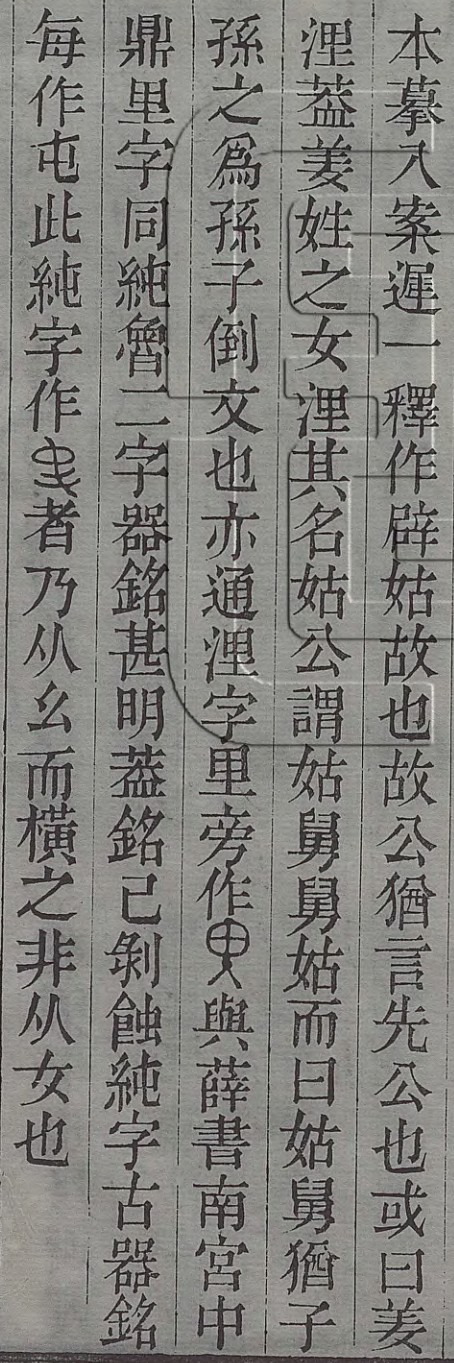 本摹入案遲一釋作辟姑故也故公猶言先公也或曰姜
浬葢姜姓之女浬其名姑公謂姑舅舅姑而曰姑舅猶子
孫之爲孫子倒文也亦通浬字里旁作與薛書南宮中
鼎里字同純魯二字器銘甚明葢銘已剝蝕純字古器銘
每作屯此純字作者乃从幺而橫之非从女也